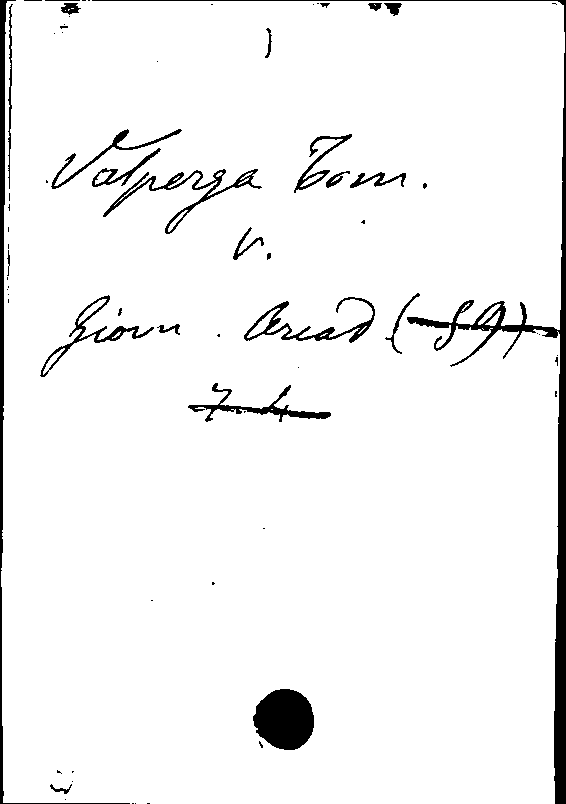 )
Valperga Tom.
v.
Giorn. Arcad. (59)
7.4